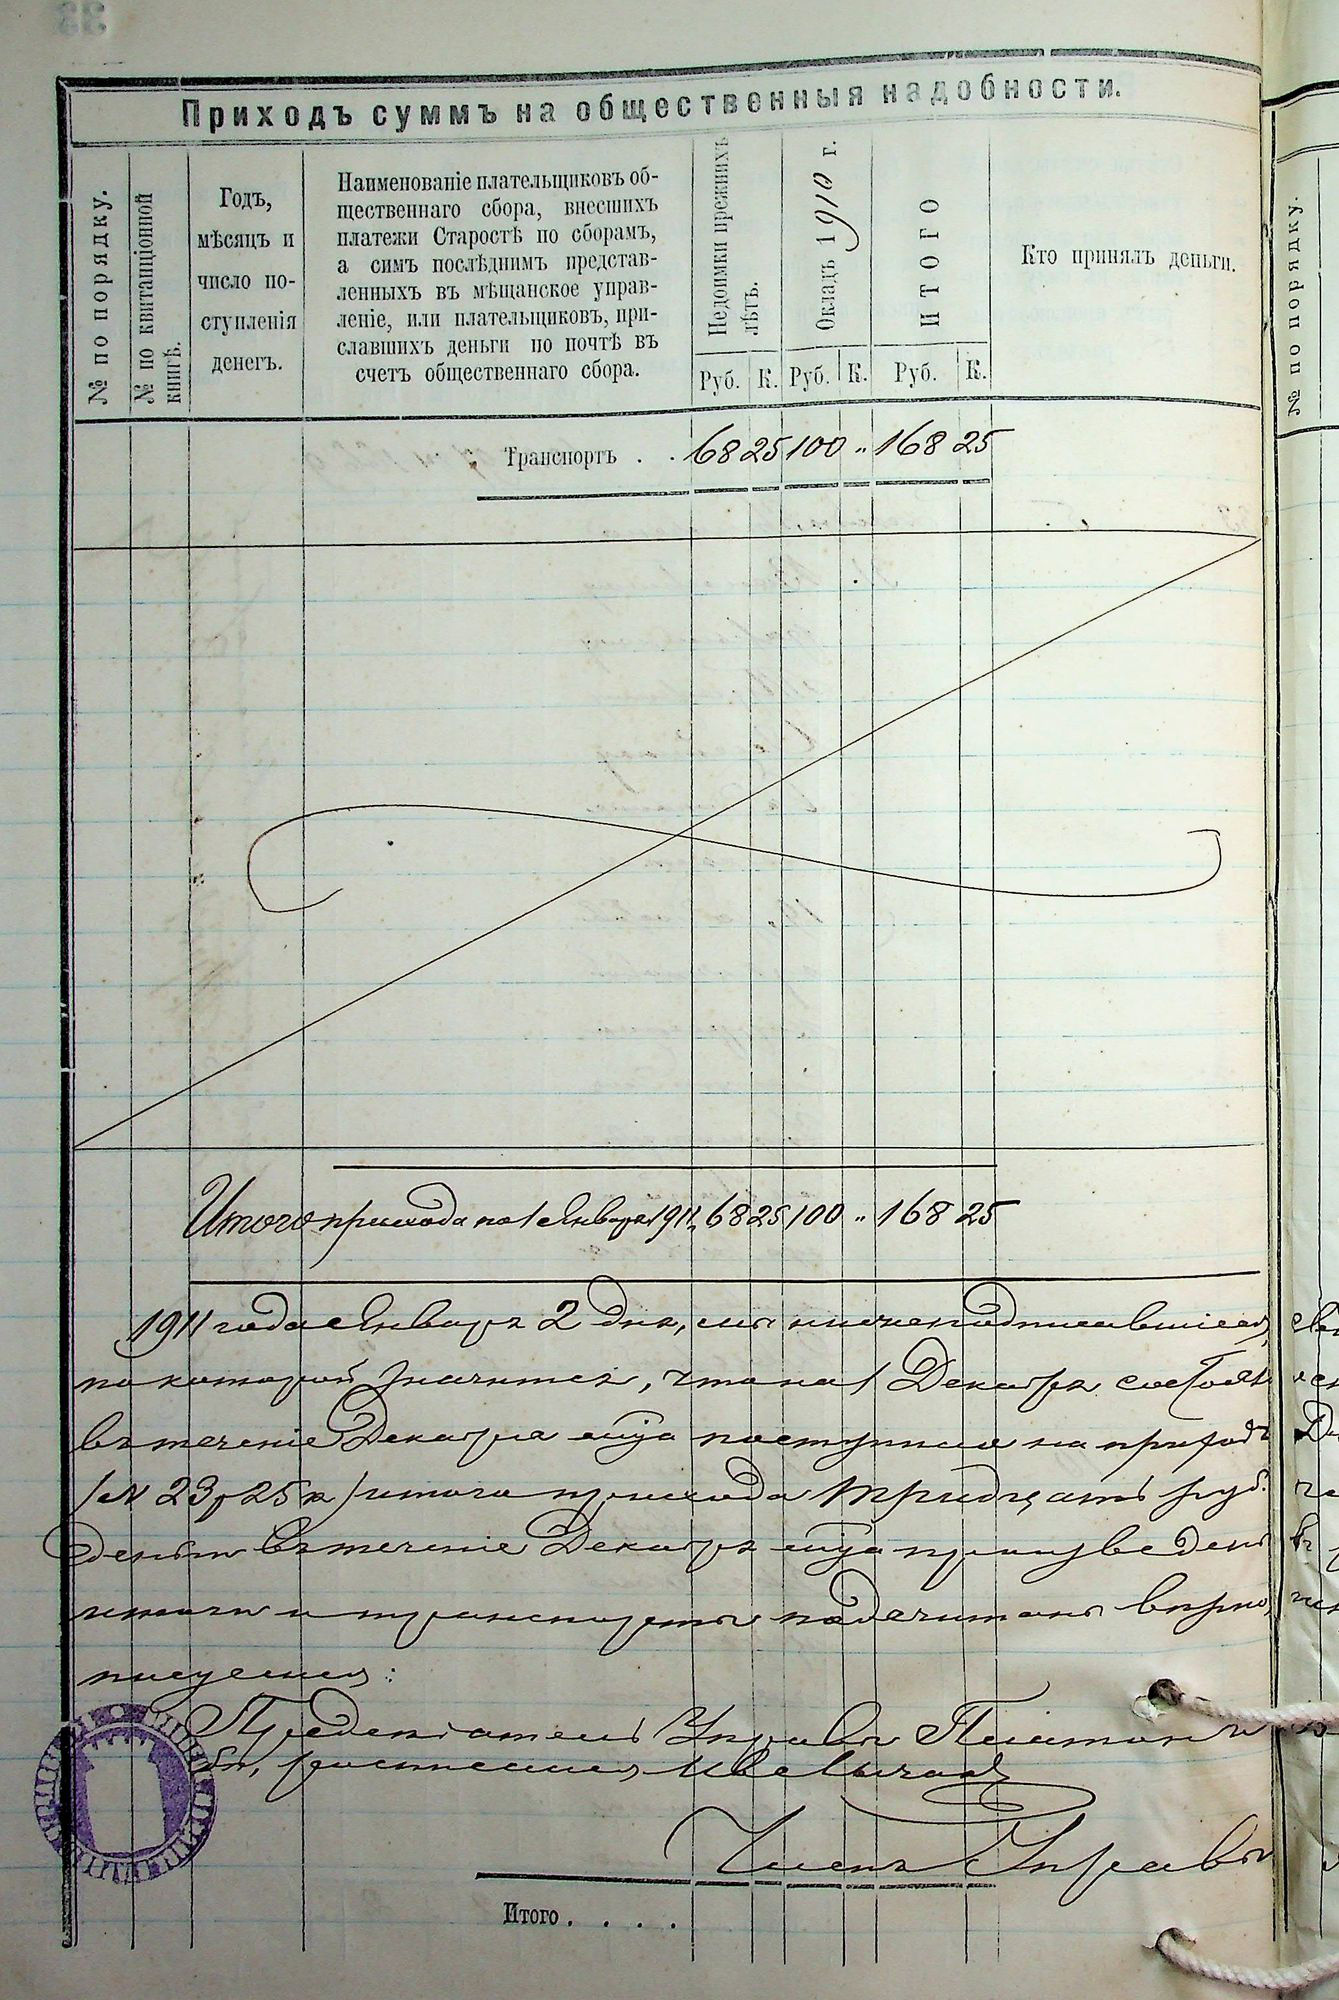 Приходъ суммъ на общественныя надобности.
№ по порядку.
№ по квитанціонной
книгѣ.
Годъ,
мѣсяцъ и
число по-
ступленія
денегъ.
Наименованіе плательщиковъ об-
щественнаго сбора, внесшихъ
платежи Старостѣ по сборамъ,
а симъ послѣднимъ представ-
ленныхъ въ мѣщанское управ-
леніе, или плательщиковъ, при-
славшихъ деньги по почтѣ въ
счетъ общественнаго сбора.
Недоимки прежнихъ
лѣтъ.
Окладъ 1910 г.
ИТОГО
Кто принялъ деньги.
Руб. К. Руб. К. Руб. К.
Транспортъ . . 68 25 100 „ 168 25
Итого прихода по 1 Января 1911 68 25 100 „ 168 25
1911 года Января 2 дня, мы нижеподписавшіеся,
по которой значится, что на 1 Декабря состоял
въ теченіе Декабря м-ца поступило на приходъ
23 р 25 к / итого прихода тридцать руб.
въ теченіе Декабря м-ца произведен
итоги и транспорты подсчитаны вѣрно,
писуемся:
Предсѣдатель Управы Платон
Членъ Управы
Итого . . . .
№ по порядку.